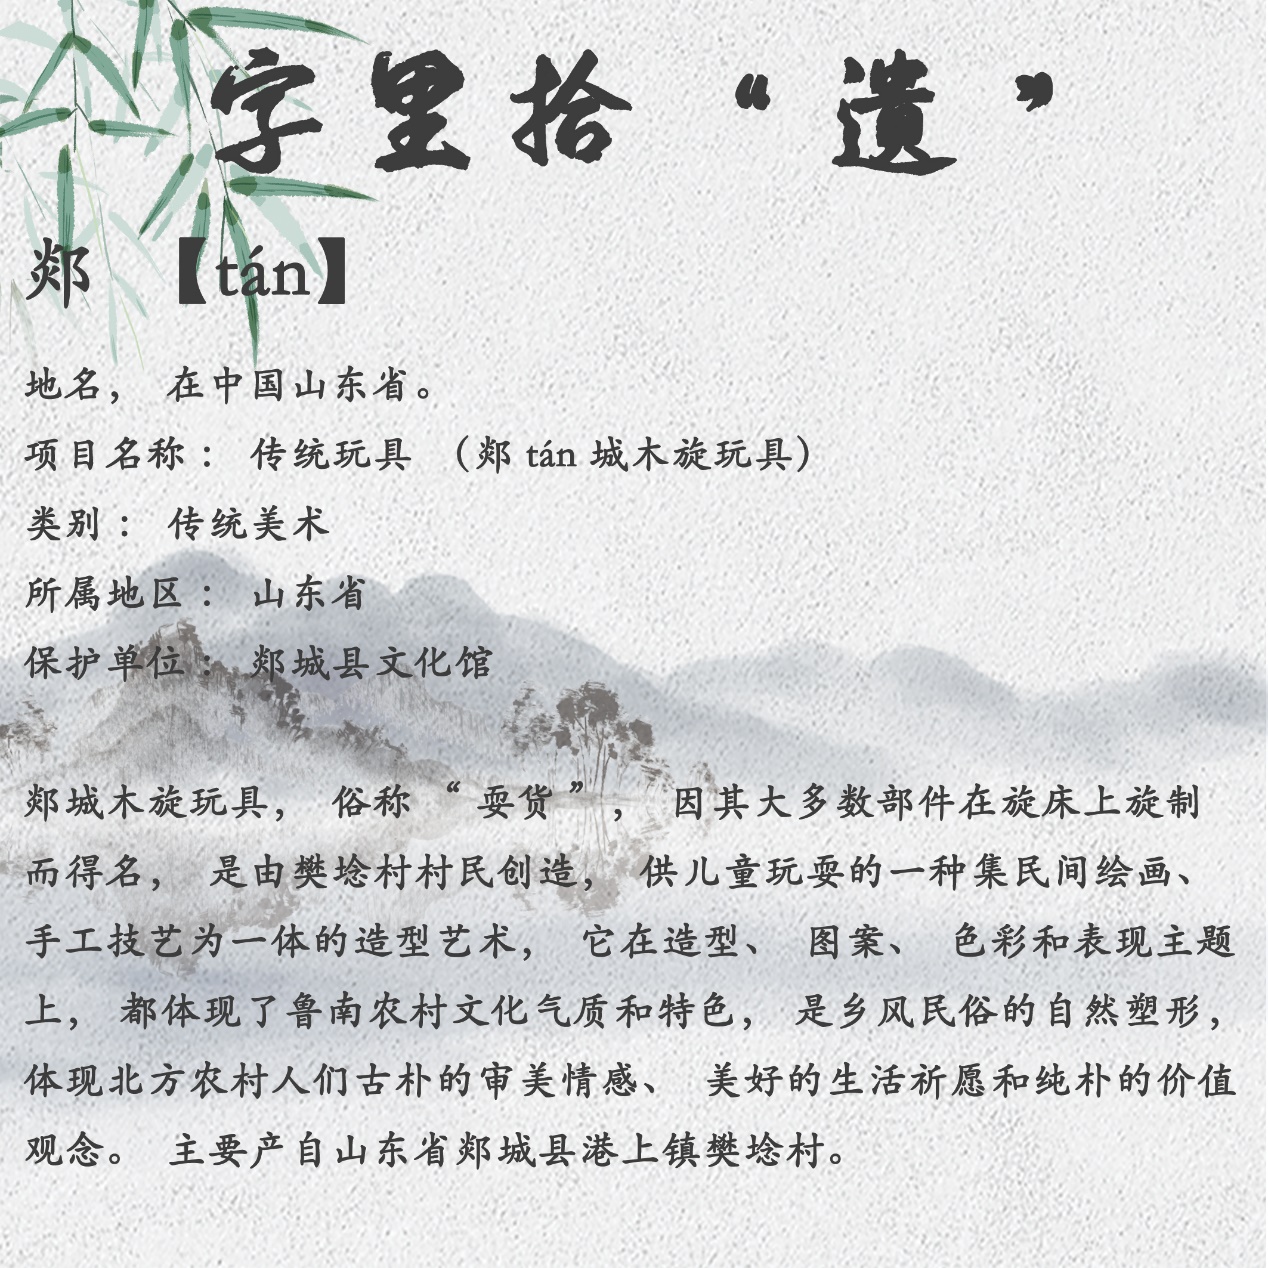 字里拾“遗”
郯 【tán】
地名， 在中国山东省。
项目名称： 传统玩具 （郯 tán 城木旋玩具）
类别： 传统美术
所属地区： 山东省
保护单位： 郯城县文化馆
郯城木旋玩具， 俗称 “ 耍货 ” ， 因其大多数部件在旋床上旋制
而得名， 是由樊埝村村民创造， 供儿童玩耍的一种集民间绘画、
手工技艺为一体的造型艺术， 它在造型、 图案、 色彩和表现主题
上， 都体现了鲁南农村文化气质和特色， 是乡风民俗的自然塑形，
体现北方农村人们古朴的审美情感、 美好的生活祈愿和纯朴的价值
观念。 主要产自山东省郯城县港上镇樊埝村。